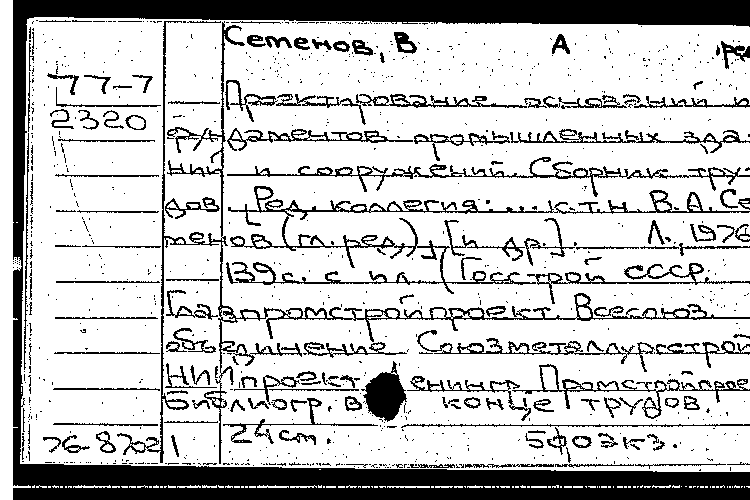 Семенов, В А ред
77-7
Проектирование оснований и
2320
фундаментов промышленных зда-
ний и сооружений. Сборник тру-
дов. [Ред. коллегия: ... к.т.н. В.А. Се-
менов (гл. ред.)], [и др.]. Л., 1976
139 с. с ил. (Госстрой СССР.
Главпромстройпроект. Всесоюз.
объединение Союзметаллургстрой
НИИпроект. Ленингр. Промстройпрое
Библиогр. в конце трудов.
24 cm. 590 экз.
76-8702 1